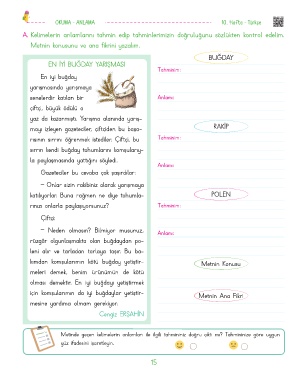 OKUMA - ANLAMA
10. Hafta - Türkçe
A. Kelimelerin anlamlarını tahmin edip tahminlerimizin doğruluğunu sözlükten kontrol edelim.
Metnin konusunu ve ana fikrini yazalım.
EN İYİ BUĞDAY YARIŞMASI
En iyi buğday
yarışmasında yarışmaya
senelerdir katılan bir
çiftçi, büyük ödülü o
yaz da kazanmıştı. Yarışma alanında yarış-
mayı izleyen gazeteciler, çiftçiden bu başa-
rısının sırrını öğrenmek istediler. Çiftçi, bu
sırrın kendi buğday tohumlarını komşularıy-
la paylaşmasında yattığını söyledi.
Gazeteciler bu cevaba çok şaşırdılar:
– Onlar sizin rakibiniz olarak yarışmaya
katılıyorlar. Buna rağmen ne diye tohumla-
rınızı onlarla paylaşıyorsunuz?
Çiftçi:
– Neden olmasın? Bilmiyor musunuz,
rüzgâr olgunlaşmakta olan buğdaydan po-
leni alır ve tarladan tarlaya taşır. Bu ba-
kımdan komşularımın kötü buğday yetiştir-
meleri demek, benim ürünümün de kötü
olması demektir. En iyi buğdayı yetiştirmek
için komşularımın da iyi buğdaylar yetiştir-
mesine yardımcı olmam gerekiyor.
Cengiz ERŞAHİN
BUĞDAY
Tahminim:
Anlamı:
RAKİP
Tahminim:
Anlamı:
POLEN
Tahminim:
Anlamı:
Metnin Konusu
Metnin Ana Fikri
Metinde geçen kelimelerin anlamları ile ilgili tahminimiz doğru çıktı mı? Tahminimize göre uygun
yüz ifadesini işaretleyin.
15